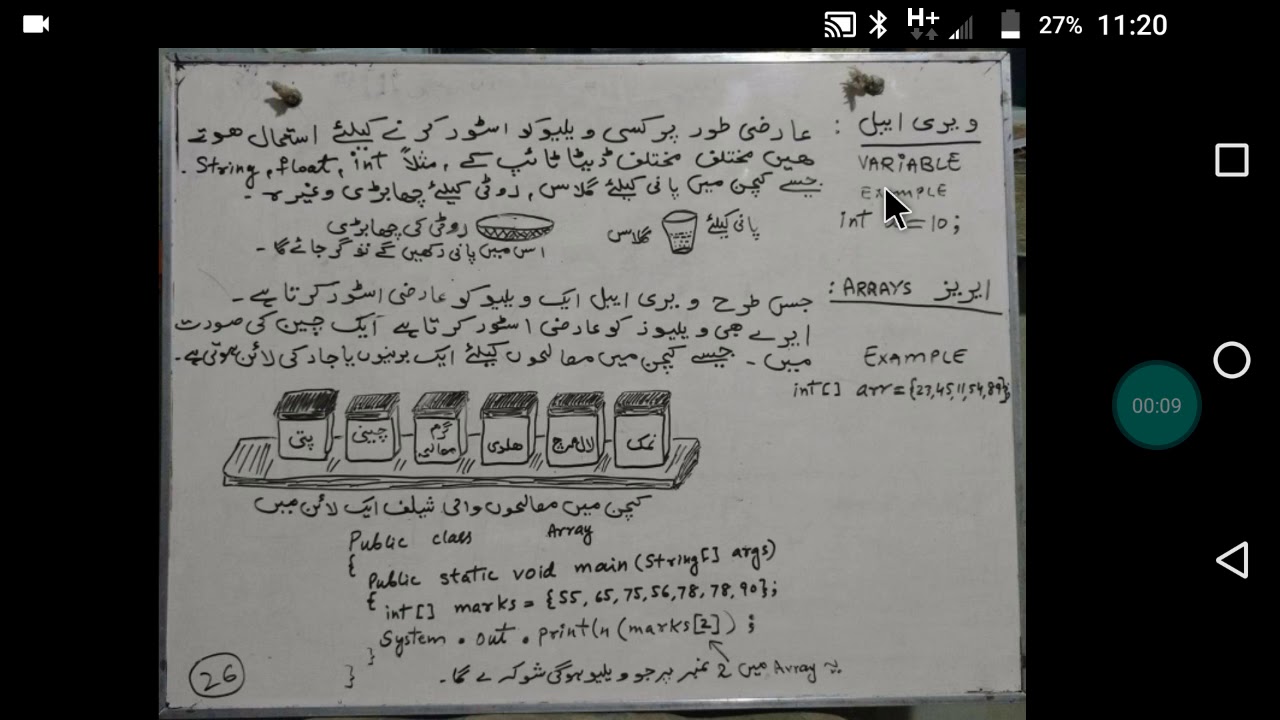 27% 11:20
H+
ویری ایبل : عارضی طور پر کسی ویلیو کو اسٹور کرنے کیلئے استعمال ھوتے
VARIABLE
ھیں مختلف مختلف ڈیٹا ٹائپ کے , مثلاً String, float, int .
EXAMPLE
جیسے کیچن میں پانی کیلئے گلاس, روٹی کیلئے چھابڑی وغیرہ -
int = 10;
پانی کیلئے گلاس
روٹی کی چھابڑی
اس میں پانی رکھیں گے تو گر جائے گا -
ایریز ARRAYS : جس طرح ویری ایبل ایک ویلیو کو عارضی اسٹور کرتا ہے -
ایرے بھی ویلیوز کو عارضی اسٹور کرتا ہے ایک چین کی صورت
EXAMPLE
میں - جیسے کیچن میں مصالحوں کیلئے ایک یا جار کی لائن ہوتی ہے -
int[] arr = {23,45,11,54,89};
نمک
لال مرچ
ھلدی
گرم مصالحہ
چینی
پتی
00:09
کیچن میں مصالحوں والی شیلف ایک لائن میں
Public class Array
{
Public static void main (String[] args)
{ int[] marks = {55, 65, 75, 56, 78, 78, 90};
System . out . println (marks[2]) ;
}
یہ Array میں 2 نمبر پر جو ویلیو ہوگی شو کرے گا -
}
26